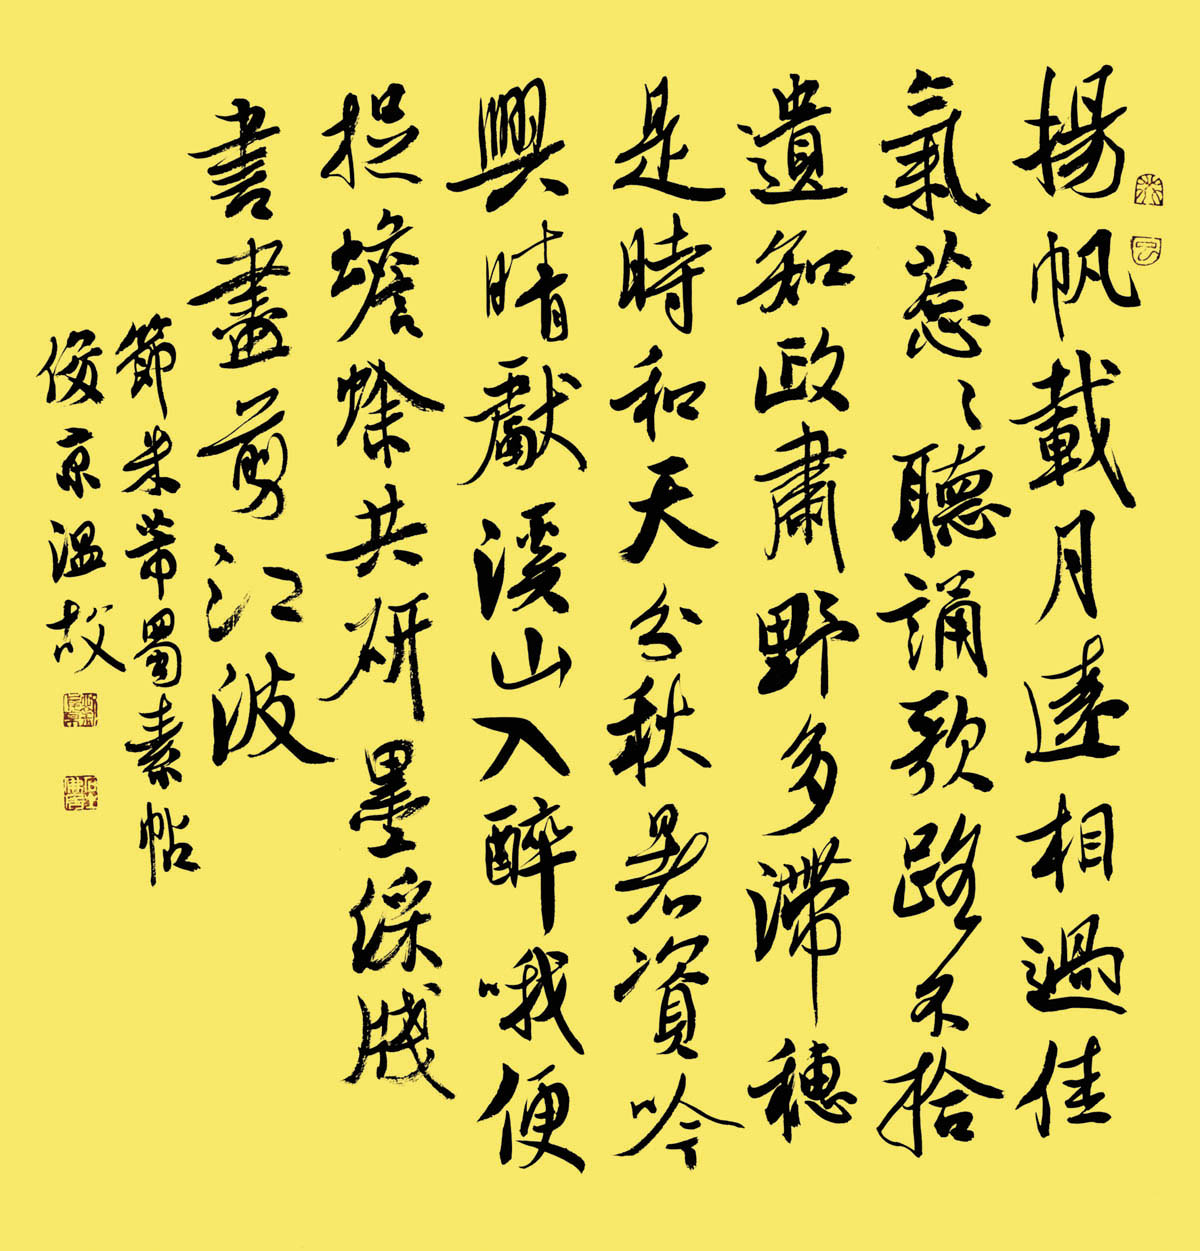 揚帆載月遠相過佳
氣葱〻聽誦歌路不拾
遺知政肅野多滯穗
是時和天分秋暑資吟
興晴獻溪山入醉哦便
捉蟾蜍共研墨綵牋
書盡剪江波
節米芾蜀素帖
俊京溫故